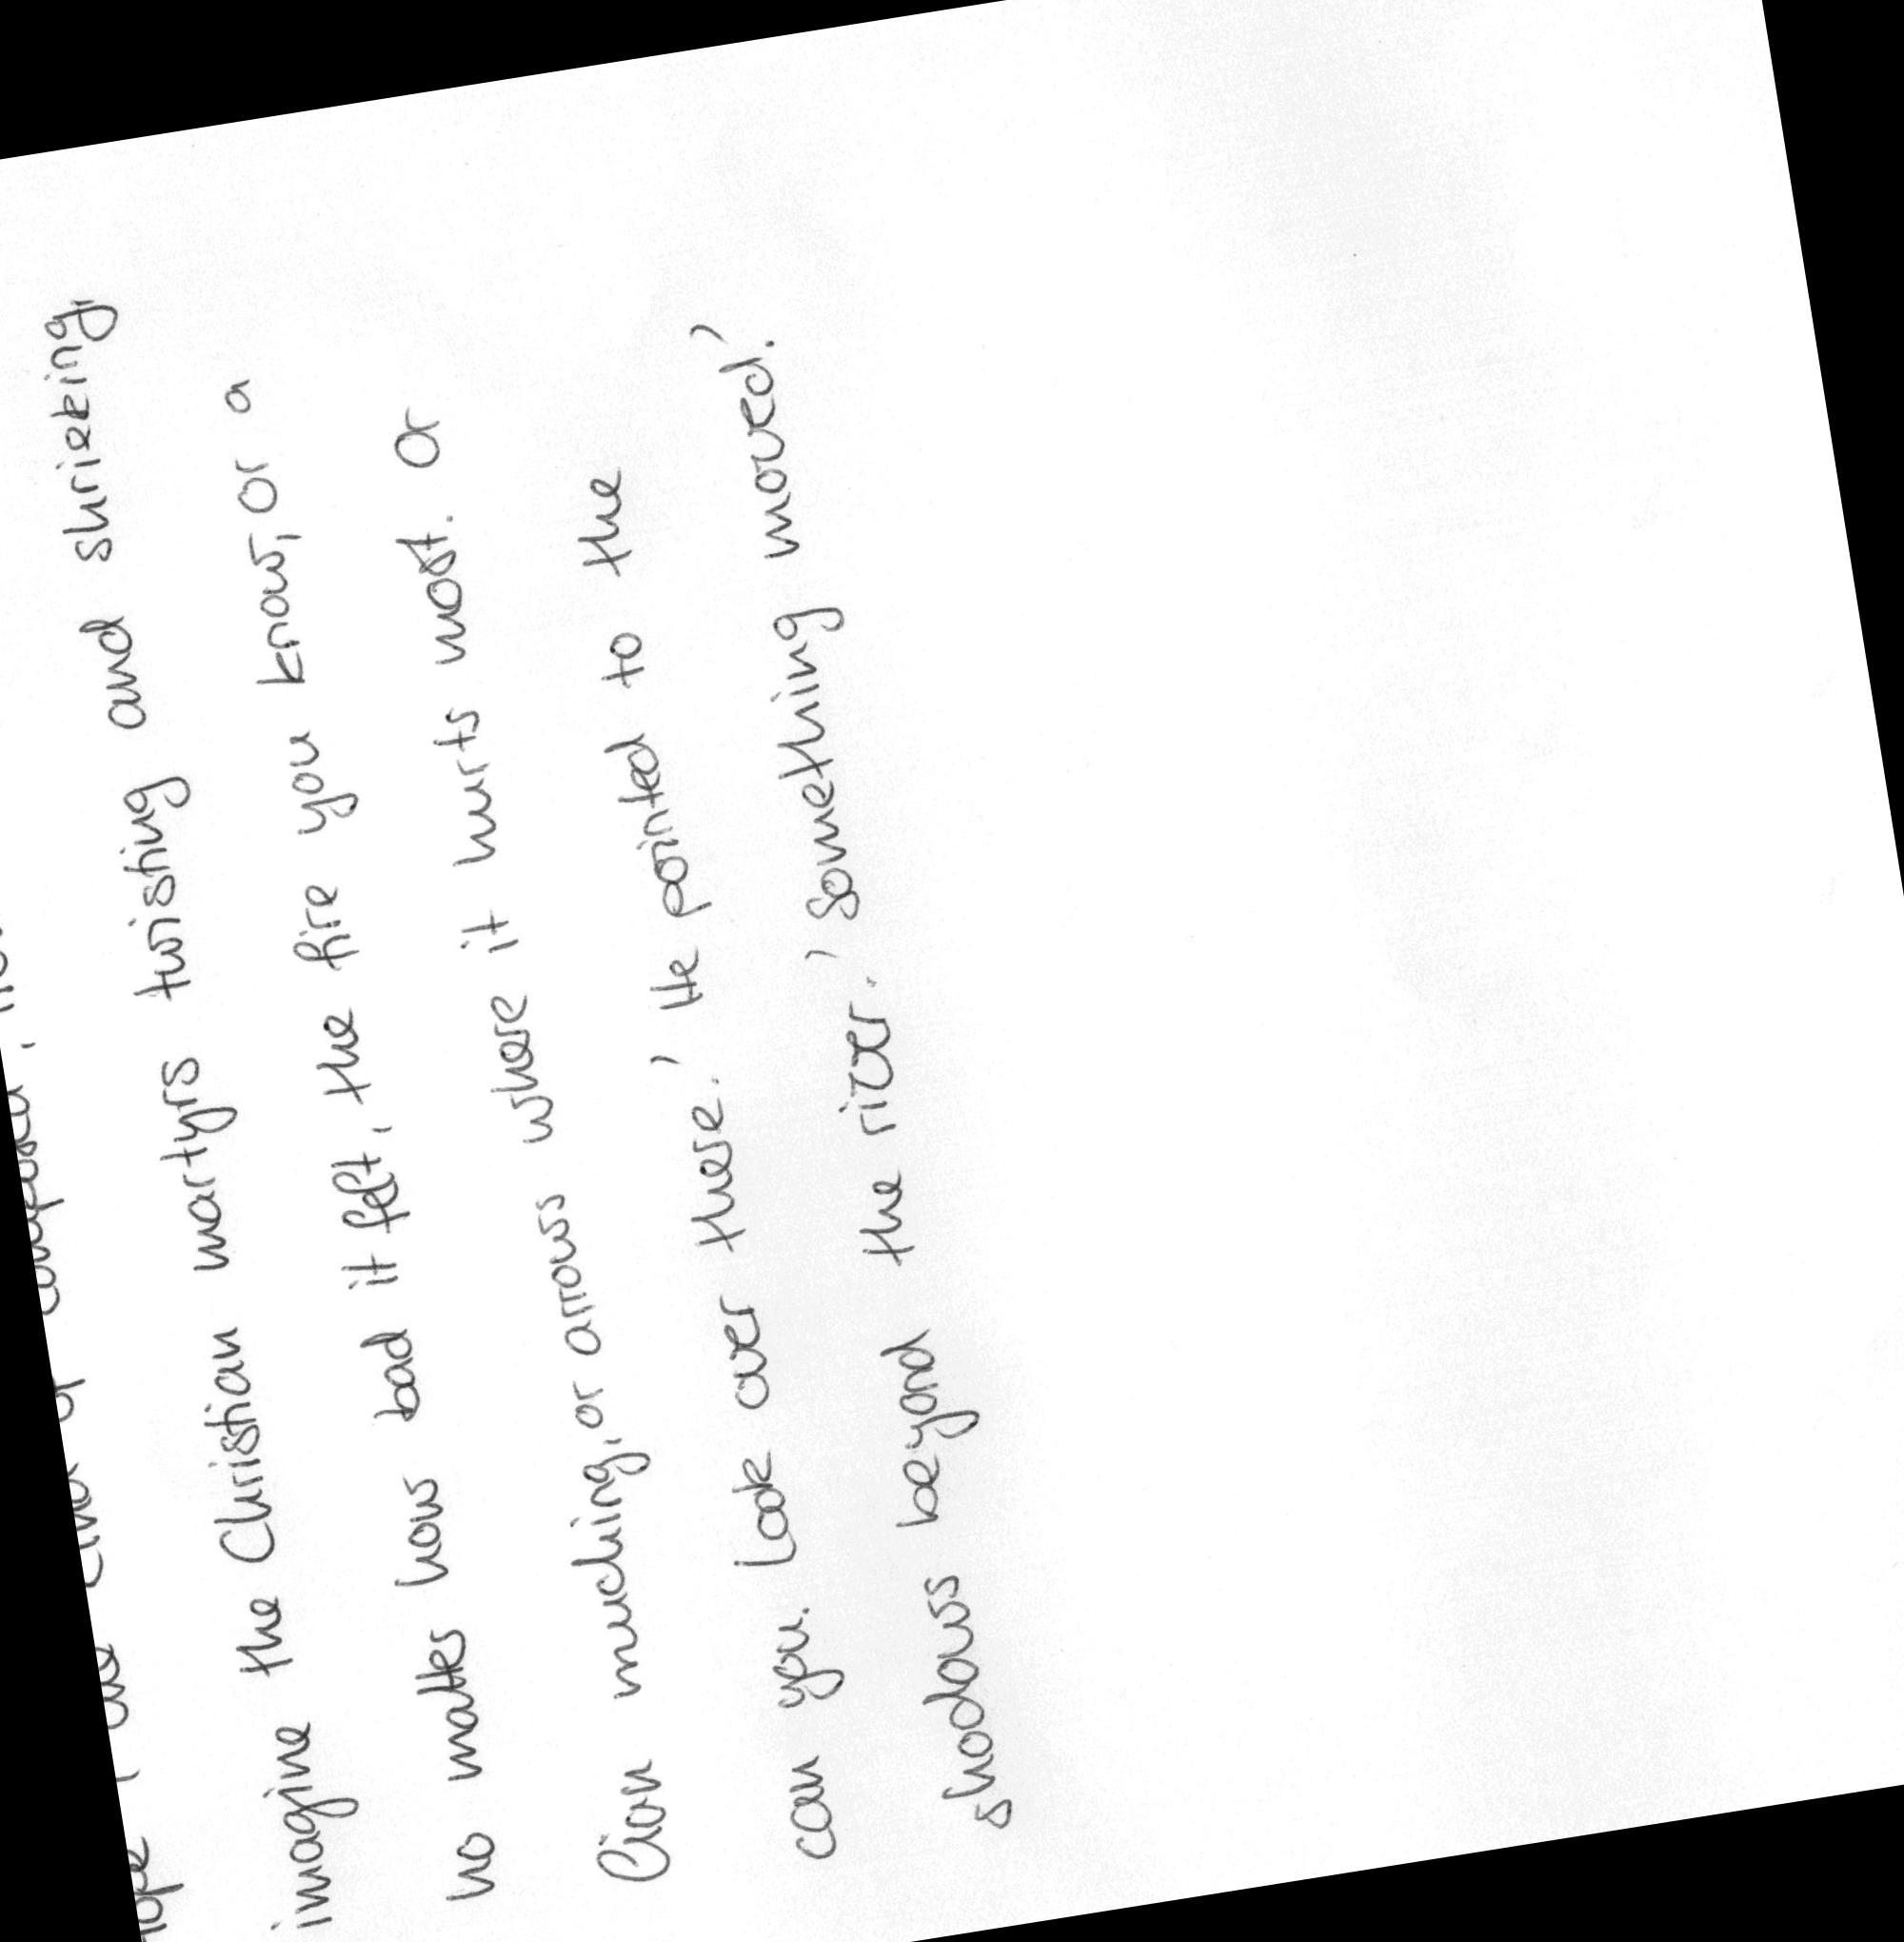 imagine the Christian martyrs twisting and shrieking,
no matter how bad it felt, the fire you know, or a
Lion munching, or arrows where it hurts most. Or
can you. Look over there.' He pointed to the
shadows beyond the river.' Something moved.'